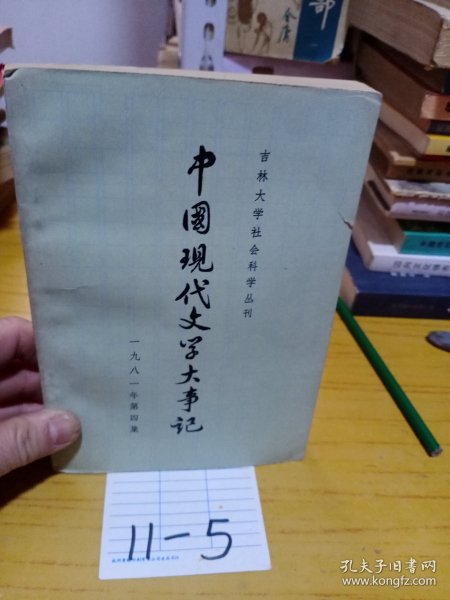 吉林大学社会科学丛刊
中國现代文学大事记
一九八一年第四集
11-5
孔夫子旧书网
www.kongfz.com